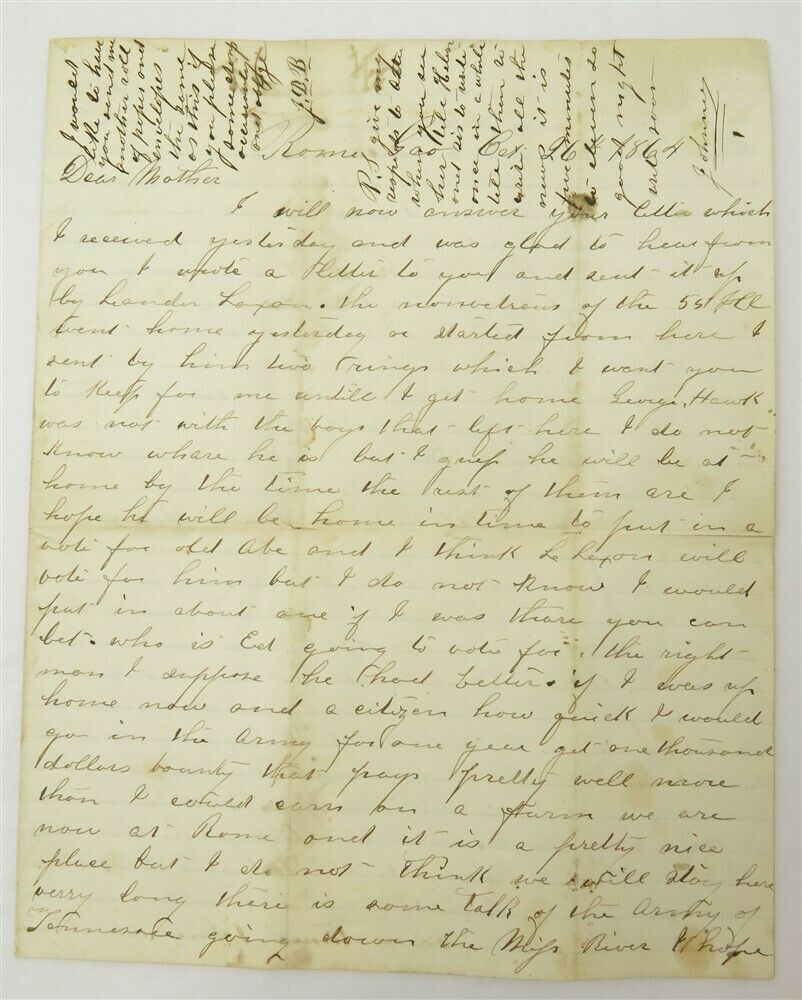 Rome Ga Oct 26th 1864
Dear Mother
I will now answer your letter which
I received yesterday and was glad to hear from
you I wrote a letter to you and sent it up
by Leander Laxon. the nonveterans of the 55 Ill
went home yesterday or started from here I
sent by him two rings which I want you
to keep for me untill I get home George Hawk
was not with the boys that left here I do not
know whare he is but I guess he will be at
home by the time the rest of them are I
hope he will be home in time to put in a
vote for old Abe and I think Le Laxon will
vote for him but I do not know I would
put in about one if I was thare you can
bet. who is Ed going to vote for. the right
man I suppose he had better. if I was up
home now and a citizen how quick I would
go in the army for one year get one thousand
dollars bounty that pays pretty well more
than I could earn on a farm we are
now at Rome and it is a pretty nice
place but I do not think we will stay here
verry long there is some talk of the Army of
Tennessee going down the Miss River I hope
I would
like to have
you send me
another roll
of paper and
envelopes
the same
as this if
you please
some stamps
J.D.B
P.S give my
respects to all
when you see
her tell Helen
and sis to write
once in a while
tell them to
write all the
news it is
five minutes
to eleven so
good night
write soon
Johnney